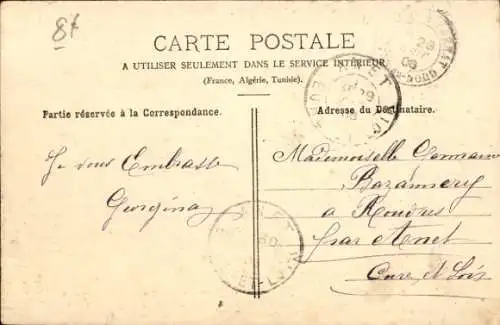 8f
CARTE POSTALE
A UTILISER SEULEMENT DANS LE SERVICE INTÉRIEUR
(France, Algérie, Tunisie).
Partie réservée à la Correspondance.
Adresse du Destinataire.
Je vous Embrasse
Georgina
Mademoiselle Germain
Bazannery
a Rouvres
par Anet
Eure et Loir
ANET